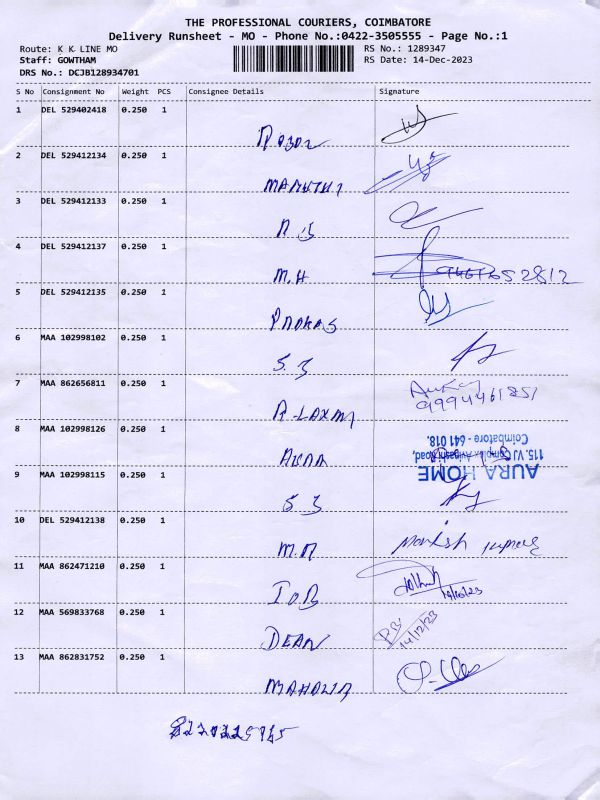 THE PROFESSIONAL COURIERS, COIMBATORE
Delivery Runsheet - MO - Phone No.:0422-3505555 - Page No.:1
Route: K K LINE MO
RS No.: 1289347
Staff: GOWTHAM
RS Date: 14-Dec-2023
DRS No.: DCJB128934701
S No Consignment No Weight PCS Consignee Details Signature
1 DEL 529402418 0.250 1
2 DEL 529412134 0.250 1
3 DEL 529412133 0.250 1
4 DEL 529412137 0.250 1
M.H
5 DEL 529412135 0.250 1
6 MAA 102998102 0.250 1
S.3
7 MAA 862656811 0.250 1
9994461851
R-LAXMI
8 MAA 102998126 0.250 1
115, VJ Complex, Avinashi Road,
Coimbatore - 641 018.
AURA HOME
9 MAA 102998115 0.250 1
S.3
10 DEL 529412138 0.250 1
M.M
11 MAA 862471210 0.250 1
IOB
12 MAA 569833768 0.250 1
14/12/23
DEAN
13 MAA 862831752 0.250 1